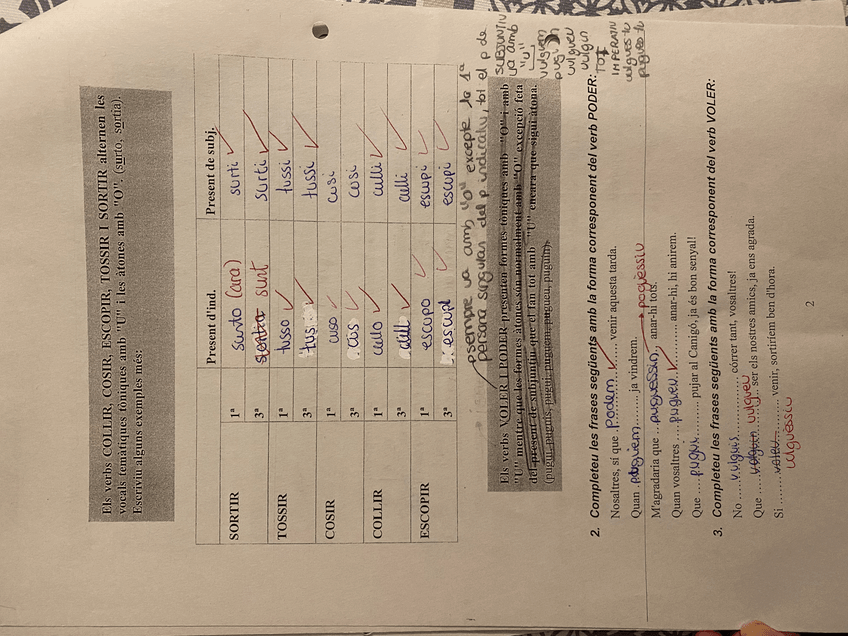 Els verbs COLLIR, COSIR, ESCOPIR, TOSSIR I SORTIR alternen les
vocals temàtiques tòniques amb "U" i les àtones amb "O". (surto, sortia).
Escriviu alguns exemples més:
Present d'ind. Present de subj.
SORTIR 1ª surto (ara) surti
3ª surt surti
TOSSIR 1ª tusso tussi
3ª tus tussi
COSIR 1ª cuso cusi
3ª cus cusi
COLLIR 1ª cullo culli
3ª cull culli
ESCOPIR 1ª escupo escupi
3ª escup escupi
sempre va amb "O" excepte la 1ª
persona singular del p indicatiu, tot el p de
SUBJUNTIU
va amb
"U"
vulguem
vulgueu
vulguin
TOT
IMPERATIU
vulgues-tu
pugues-tu
Els verbs VOLER I PODER presenten formes tòniques amb "O" i amb
"U" mentre que les formes àtones són normalment amb "O" excepció feta
del present de subjuntiu que el fan tot amb "U" encara que sigui àtona.
(pugui, puguis, pugui, puguem, pugueu, puguin).
2. Completeu les frases següents amb la forma corresponent del verb PODER:
Nosaltres, sí que Podem venir aquesta tarda.
Quan puguem ja vindrem.
M'agradaria que puguessin, anar-hi tots. → poguéssiu
Quan vosaltres pugueu anar-hi, hi anirem.
Que pugui pujar al Canigó, ja és bon senyal!
3. Completeu les frases següents amb la forma corresponent del verb VOLER:
No vulguis córrer tant, vosaltres!
Que vulguin vulgueu ser els nostres amics, ja ens agrada.
Si voleu venir, sortiríem ben d'hora.
vulguéssiu
2